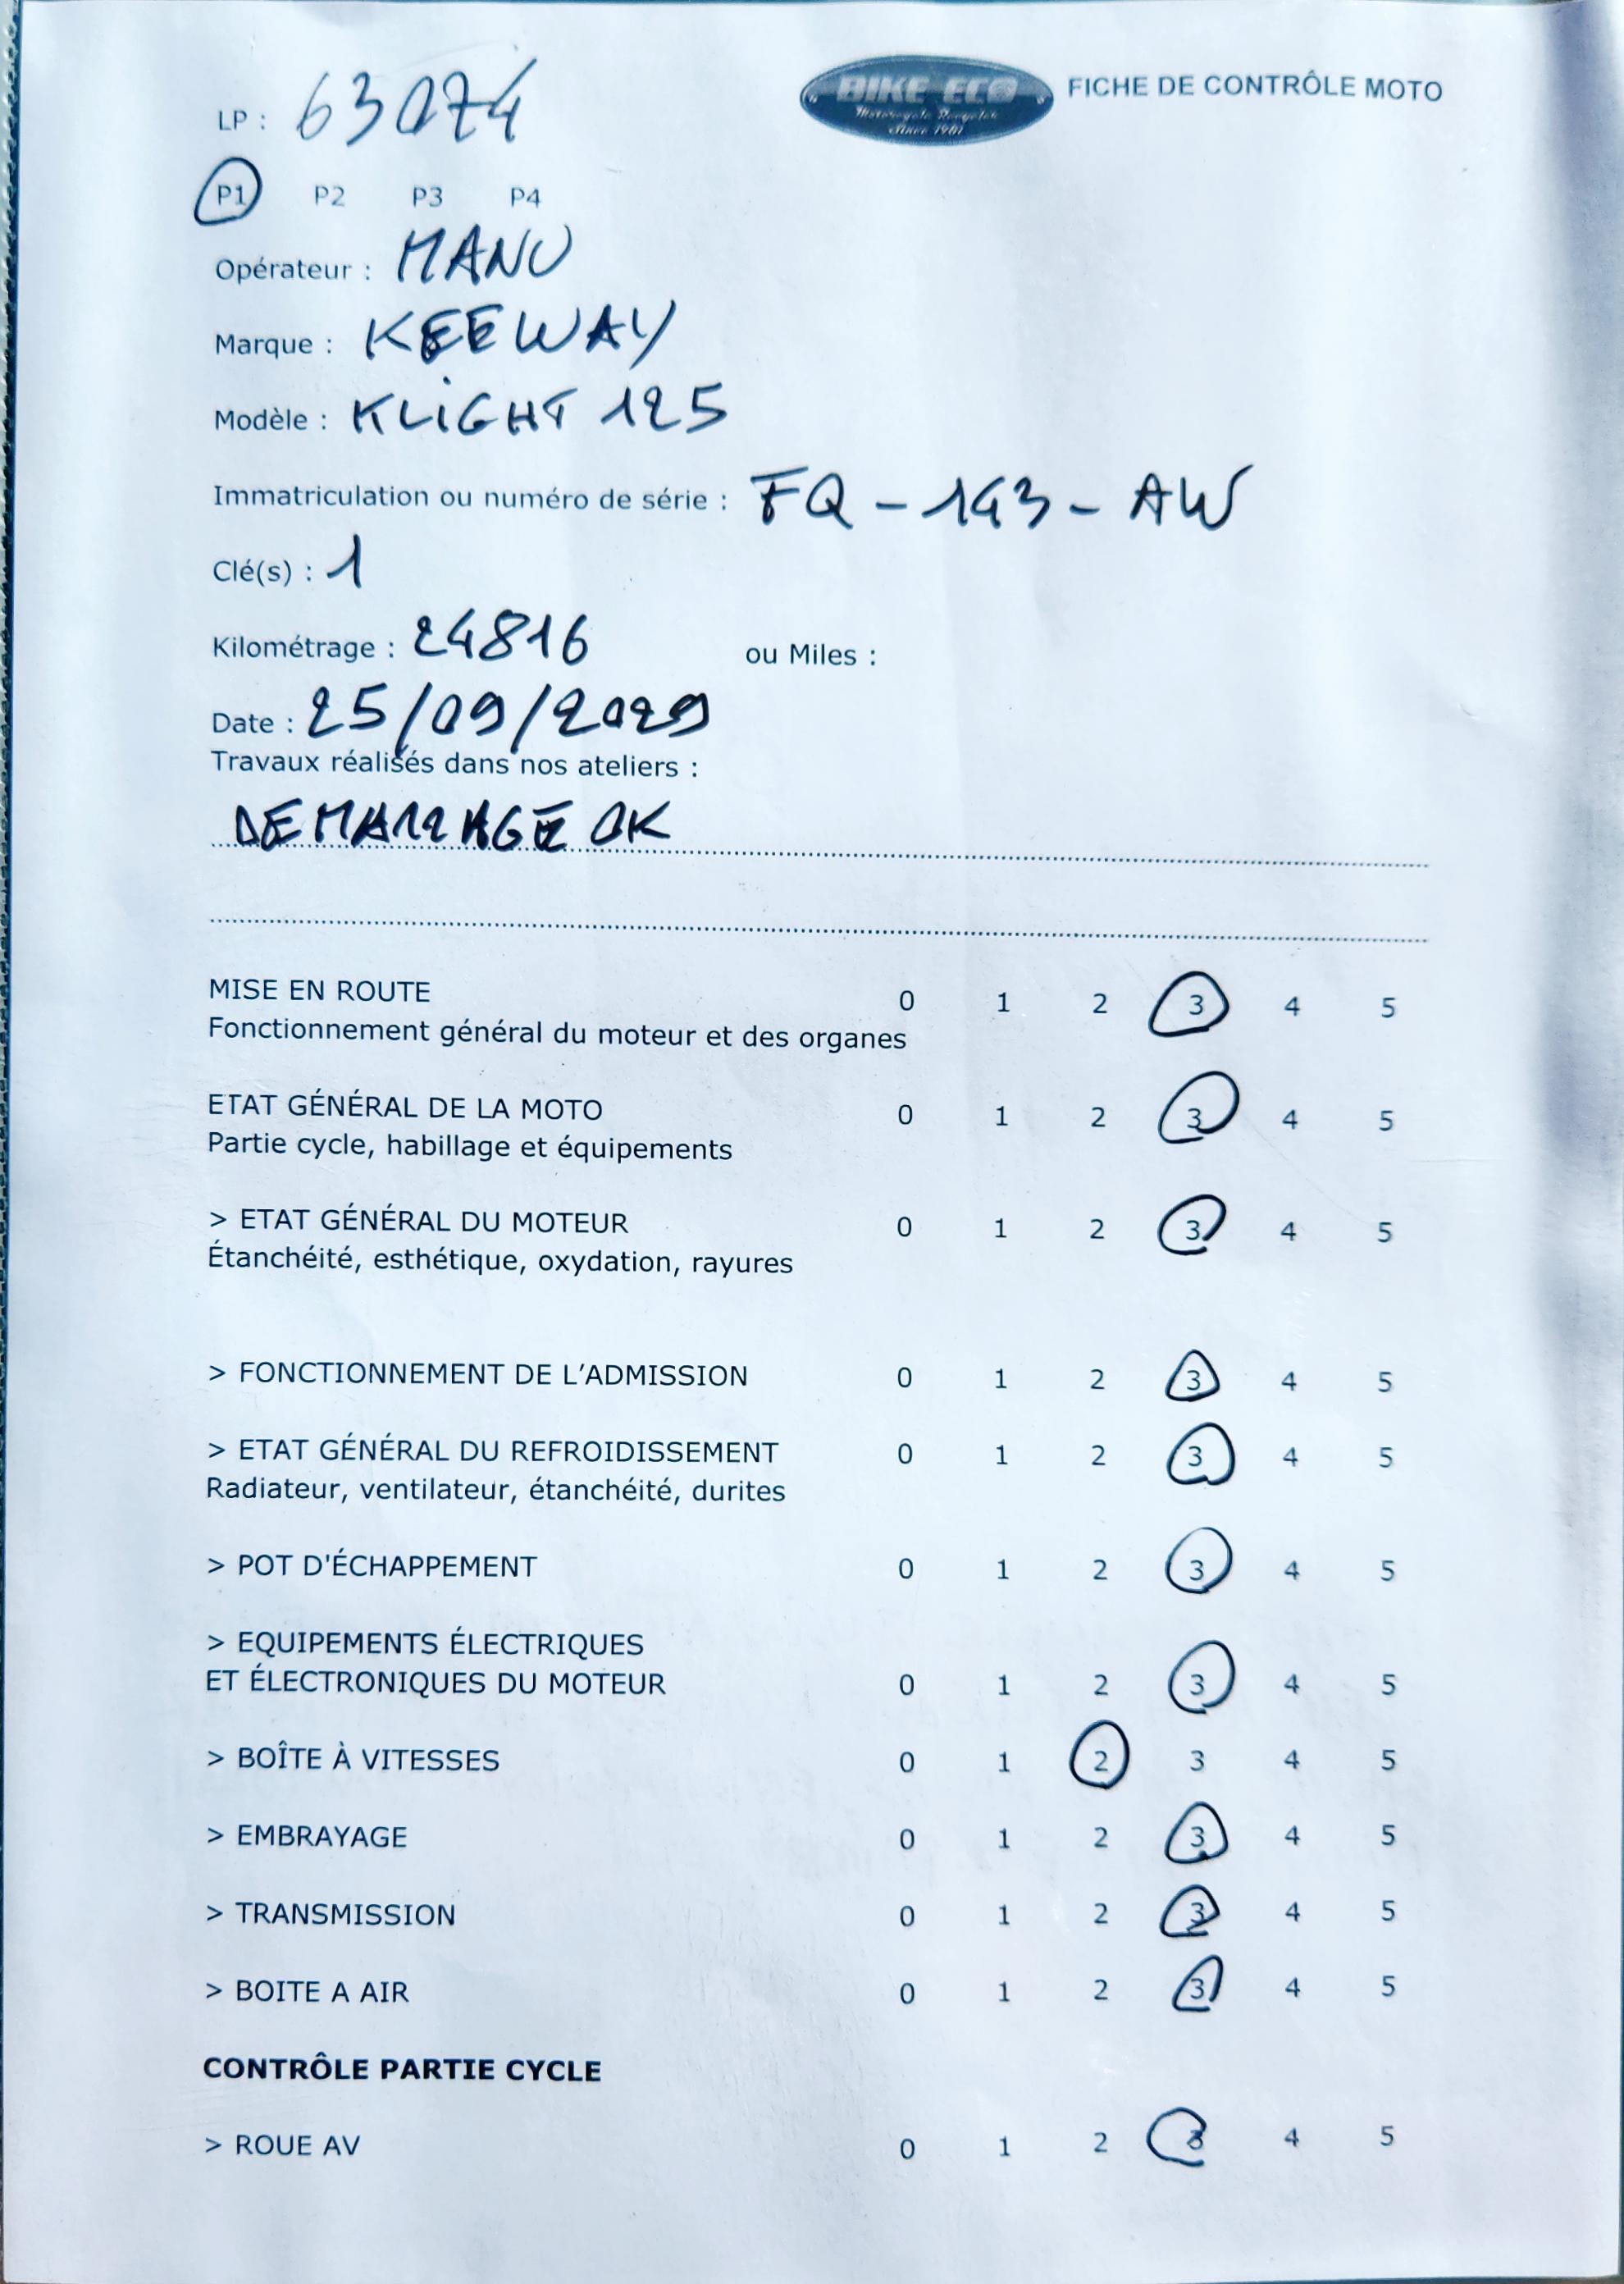 LP : 63074
BIKE ECO
Motorcycle Recycler
Since 1961
FICHE DE CONTRÔLE MOTO
P1 P2 P3 P4
Opérateur : MANU
Marque : KEEWAY
Modèle : KLIGHT 125
Immatriculation ou numéro de série : FQ - 143 - AW
Clé(s) : 1
Kilométrage : 24816 ou Miles :
Date : 25/09/2029
Travaux réalisés dans nos ateliers :
DEMARRAGE OK
MISE EN ROUTE 0 1 2 3 4 5
Fonctionnement général du moteur et des organes
ETAT GÉNÉRAL DE LA MOTO 0 1 2 3 4 5
Partie cycle, habillage et équipements
> ETAT GÉNÉRAL DU MOTEUR 0 1 2 3 4 5
Étanchéité, esthétique, oxydation, rayures
> FONCTIONNEMENT DE L'ADMISSION 0 1 2 3 4 5
> ETAT GÉNÉRAL DU REFROIDISSEMENT 0 1 2 3 4 5
Radiateur, ventilateur, étanchéité, durites
> POT D'ÉCHAPPEMENT 0 1 2 3 4 5
> EQUIPEMENTS ÉLECTRIQUES
ET ÉLECTRONIQUES DU MOTEUR 0 1 2 3 4 5
> BOÎTE À VITESSES 0 1 2 3 4 5
> EMBRAYAGE 0 1 2 3 4 5
> TRANSMISSION 0 1 2 3 4 5
> BOITE A AIR 0 1 2 3 4 5
CONTRÔLE PARTIE CYCLE
> ROUE AV 0 1 2 3 4 5